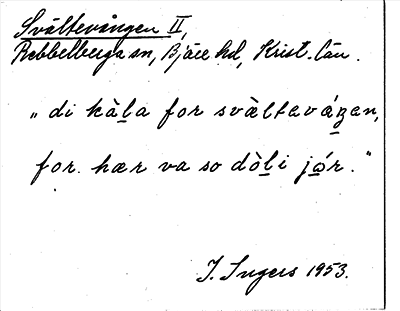 Svältevången II,
Rebbelberga sn, Bjäre hd, Krist. län.
„di kàl̲a for svæ̀lteváŋ̲en,
for. hær va so dòl̲i já̲r.“
I. Ingers 1953.